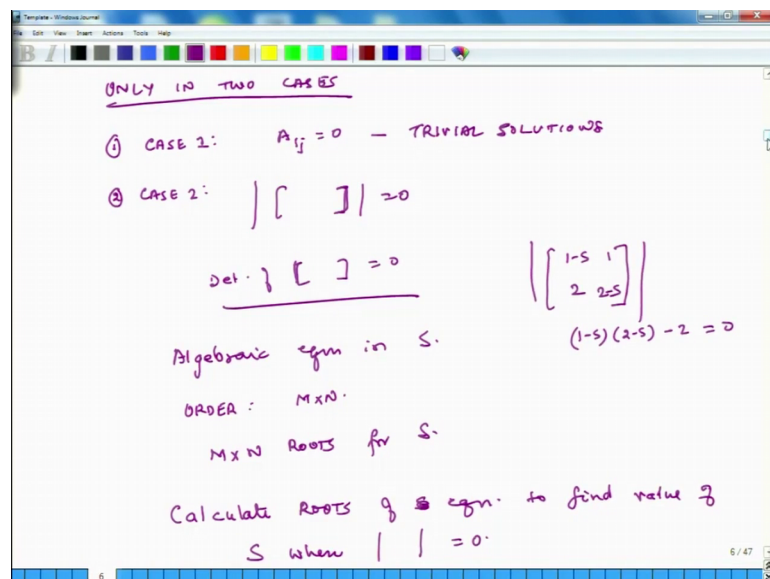 Template - Windows Journal
File Edit View Insert Actions Tools Help
ONLY IN TWO CASES
① CASE 1: Aij = 0 - TRIVIAL SOLUTIONS
② CASE 2: | [ ] | = 0
Det. of [ ] = 0
| [ 1-S 1 ] |
| [ 2 2-S ] |
(1-S) (2-S) - 2 = 0
Algebraic eqn in S.
ORDER : M×N.
M×N ROOTS for S.
Calculate ROOTS of eqn. to find value of
S when | | = 0.
6 / 47
6